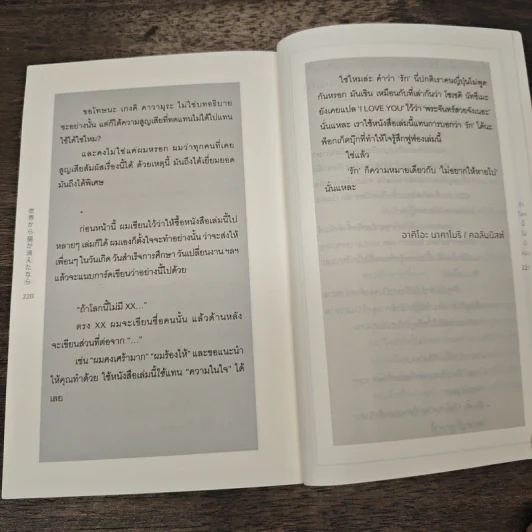 ขอโทษนะ เกงคิ คาวามุระ ไม่ใช่บทอธิบาย
ซะอย่างนั้น แต่ก็ได้ความสูญเสียที่ทดแทนไม่ได้ไปแทน
ใช้ได้ใช่ไหม?
และคงไม่ใช่แค่ผมหรอก ผมว่าทุกคนที่เคย
สูญเสียสัมผัสเรื่องนี้ได้ ด้วยเหตุนี้ มันถึงได้เยี่ยมยอด
มันถึงได้พิเศษ
ก่อนหน้านี้ ผมเขียนไว้ว่าให้ซื้อหนังสือเล่มนี้ไป
หลายๆ เล่มก็ได้ ผมเองก็ตั้งใจจะทำอย่างนั้น ว่าจะส่งให้
เพื่อนๆ ในวันเกิด วันสำเร็จการศึกษา วันเปลี่ยนงาน ฯลฯ
แล้วจะแนบการ์ดเขียนว่าอย่างนี้ไปด้วย
“ถ้าโลกนี้ไม่มี XX...”
ตรง XX ผมจะเขียนชื่อคนนั้น แล้วด้านหลัง
จะเขียนส่วนที่ต่อจาก “...”
เช่น “ผมคงเศร้ามาก” “ผมร้องไห้” และขอแนะนำ
ให้คุณทำด้วย ใช้หนังสือเล่มนี้ใช้แทน “ความในใจ” ได้
เลย
世界から猫が消えたなら
220
ใช่ไหมล่ะ คำว่า ‘รัก’ นี่ปกติเราคนญี่ปุ่นไม่พูด
กันหรอก มันเขิน เหมือนกับที่เล่ากันว่า โซเซกิ นัทซึเมะ
ยังเคยแปล ‘I LOVE YOU’ ไว้ว่า ‘พระจันทร์สวยจังเนอะ’
นั่นแหละ เราใช้หนังสือเล่มนี้แทนการบอกว่า ‘รัก’ ได้นะ
พ็อกเก็ตบุ๊กที่ทำให้ใจรู้สึกฟูฟ่องเล่มนี้
ใช่แล้ว
‘รัก’ ก็ความหมายเดียวกับ ‘ไม่อยากให้หายไป’
นั่นแหละ
อาคิโอะ นาคาโมริ / คอลัมนิสต์